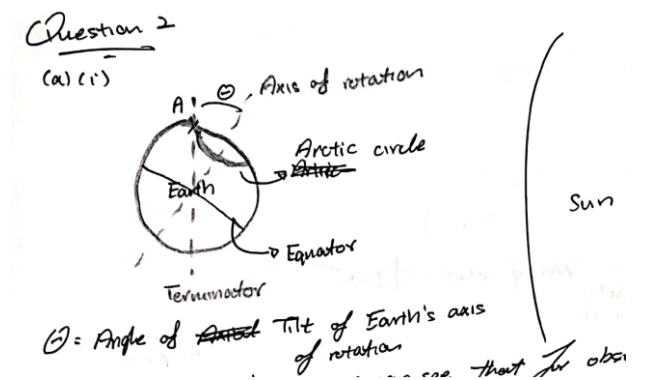 Question 2
(a) (i)
A
Θ
Axis of rotation
Arctic circle
Earth
Sun
Equator
Terminator
Θ = Angle of Tilt of Earth's axis
of rotation
see that for